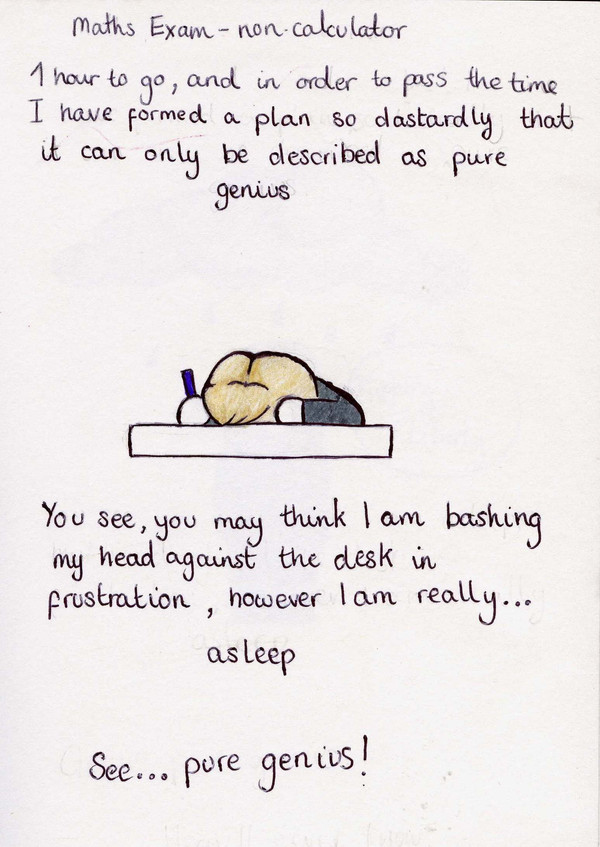 Maths Exam - non-calculator
1 hour to go, and in order to pass the time
I have formed a plan so dastardly that
it can only be described as pure
genius
You see, you may think I am bashing
my head against the desk in
frustration, however I am really...
asleep
See... pure genius!